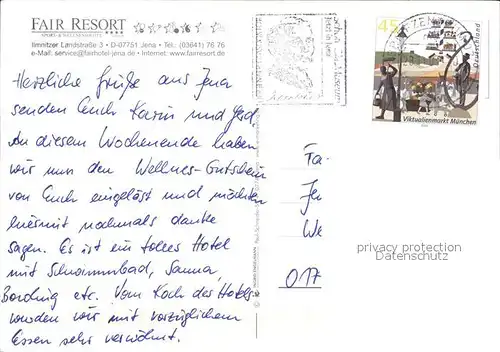 FAIR RESORT
SPORT- & WELLNESSHOTEL
Ilmnitzer Landstraße 3 • D-07751 Jena • Tel.: (03641) 76 76
e-Mail: service@fairhotel-jena.de • Internet: www.fairresort.de
Herzliche Grüße aus Jena
senden Euch Karin und Gerd.
An diesem Wochenende haben
wir nun den Wellness-Gutschein
von Euch eingelöst und möchten
hiermit nochmals danke
sagen. Es ist ein tolles Hotel
mit Schwimmbad, Sauna,
Bowling etc. Vom Koch des Hotels
wurden wir mit vorzüglichem
Essen sehr verwöhnt.
45
Deutschland
Viktualienmarkt München
Fa
Je
We
017
privacy protection
Datenschutz